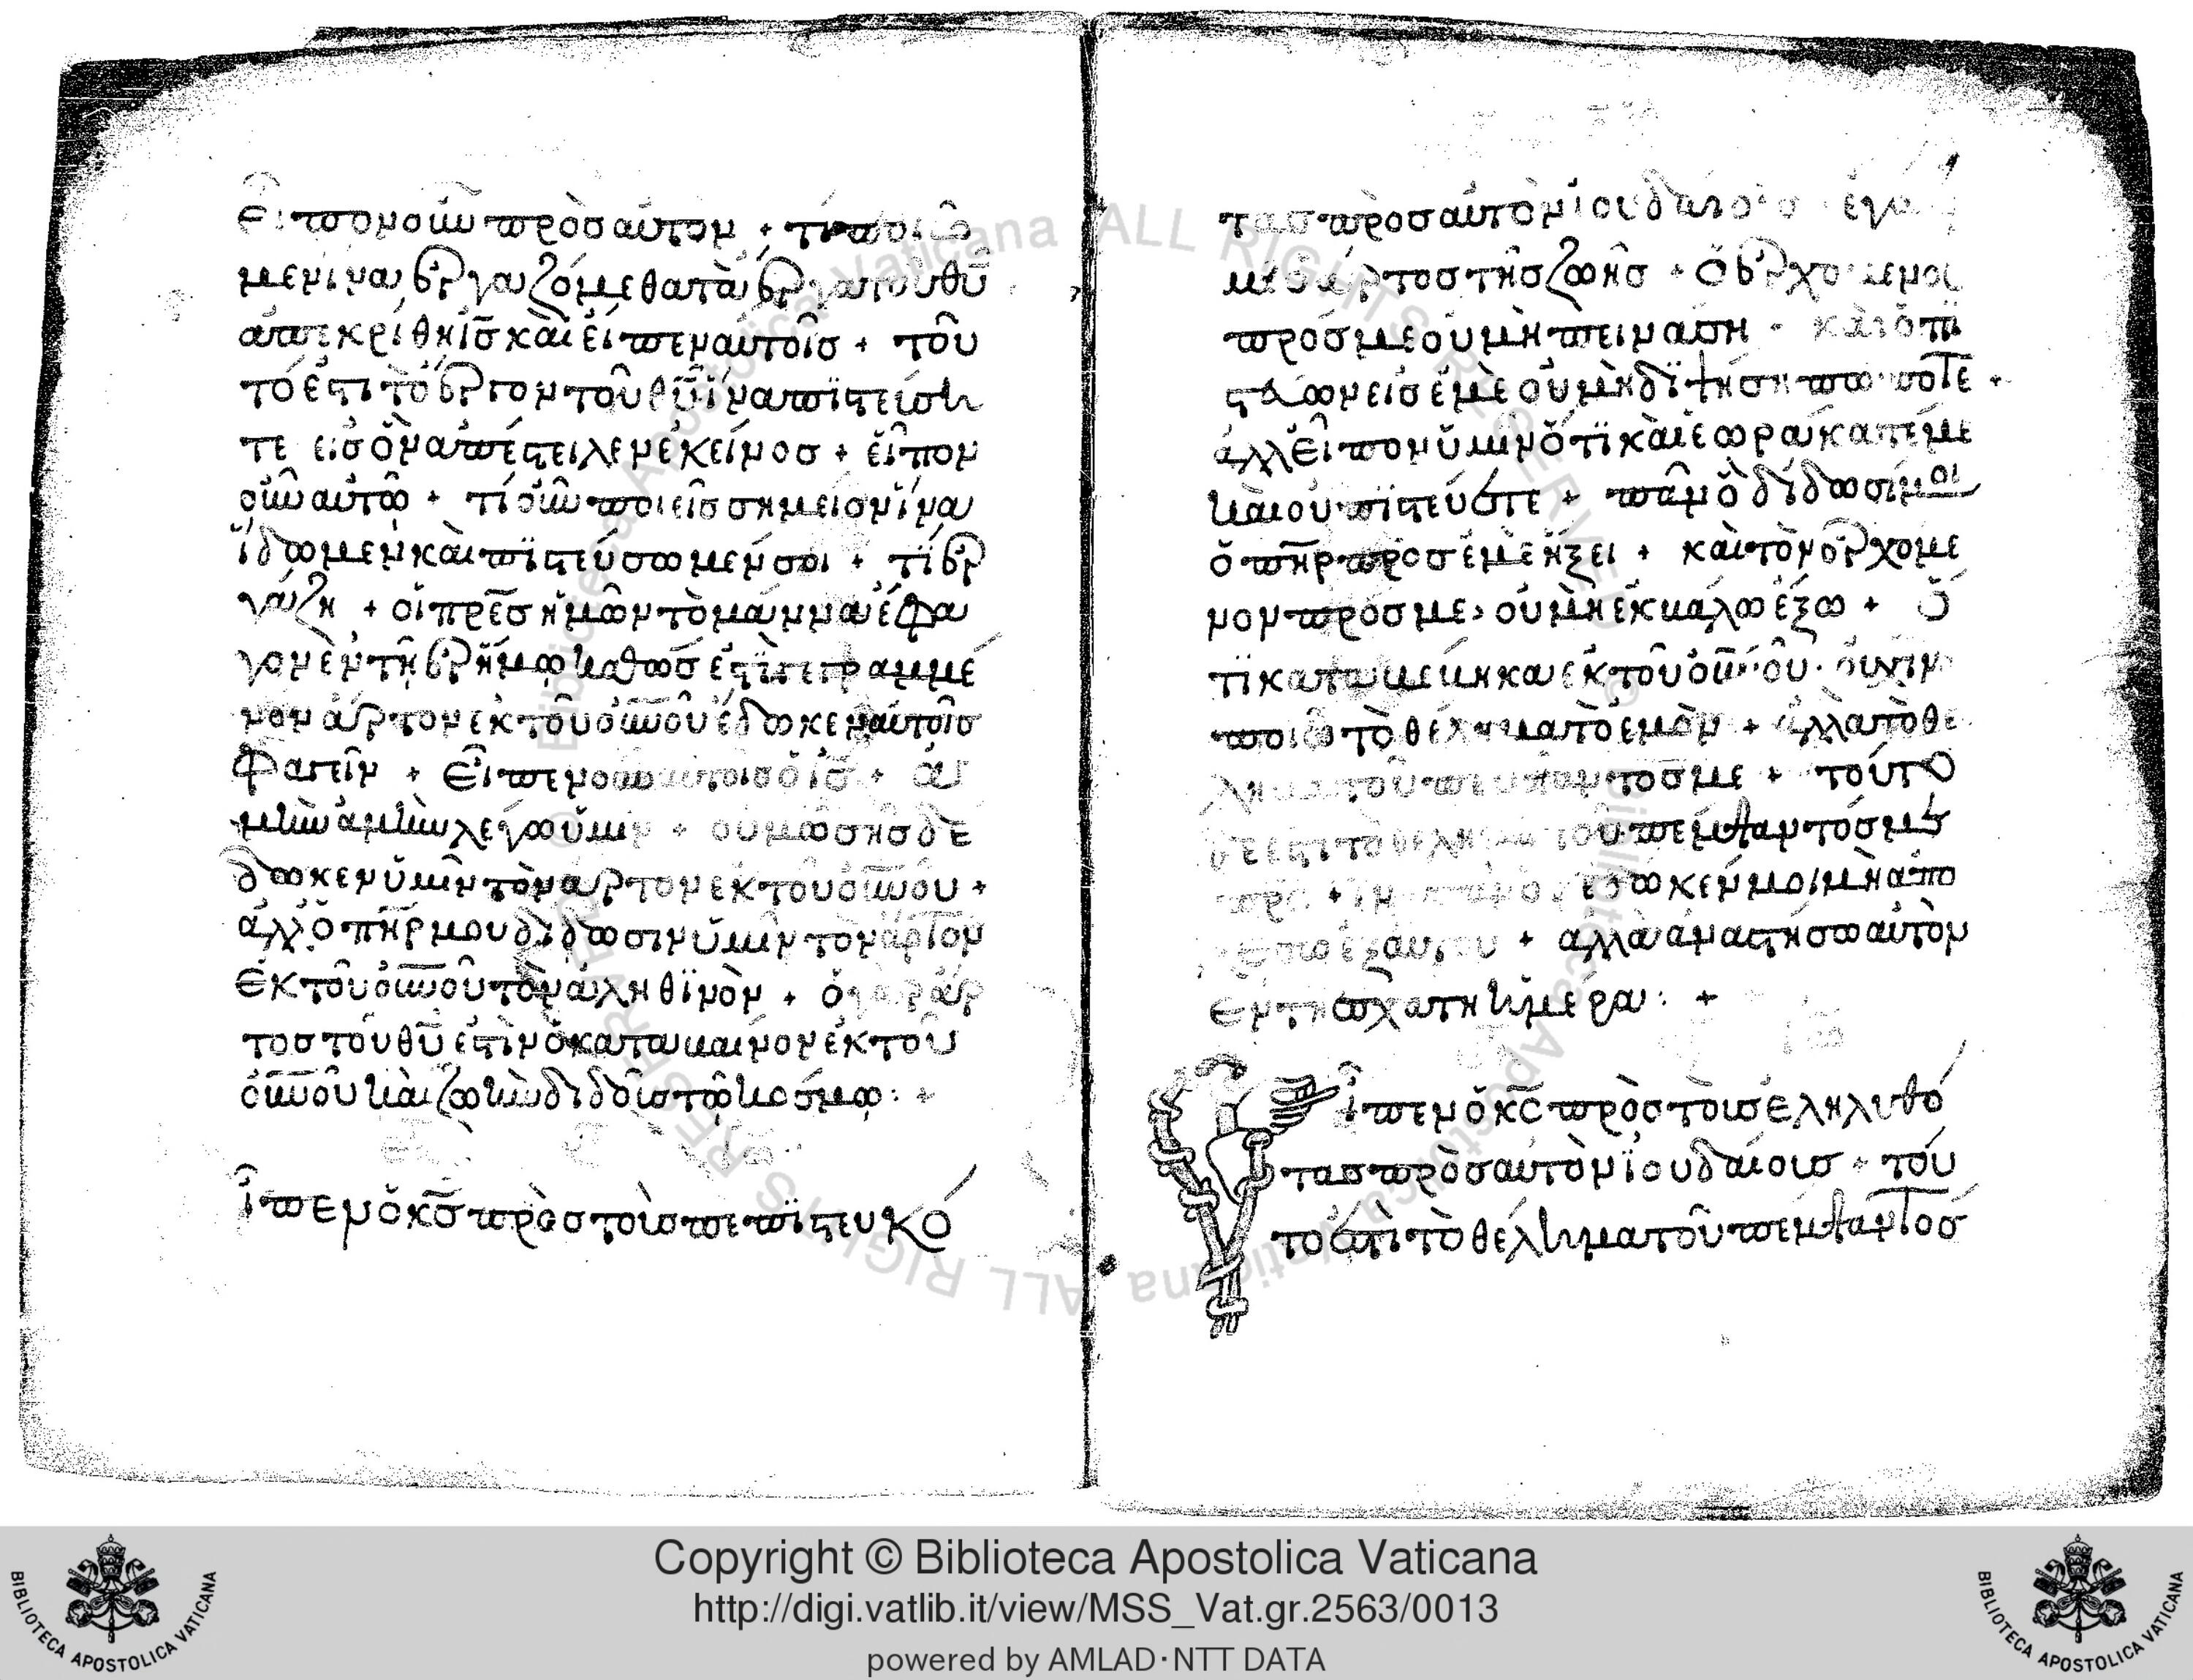 Εἶπον οὖν πρὸσ αὐτὸν + τί ποιῶ
μεν ἵνα ἐργαζόμεθα τὰ ἔργα τοῦ θῦ
ἀπεκρίθη ἰσ καὶ εἶπεν αὐτοῖσ + τοῦ
τό ἐστι τὸ ἔργον τοῦ θῦ ἵνα πϊστεύση
τε εἰσ ὃν ἀπέστειλεν ἐκείνοσ + εἶπον
οὖν αὐτῶ + τί οὖν ποιεῖσ σημεῖον ἵνα
ἴδωμεν καὶ πϊστεύσωμέν σοι + τί ἐρ
γάζη + οἱ πρεσ ἡμῶν τὸ μάννα ἔφα
γον ἐν τῆ ἐρήμω καθώσ ἐστϊ γεγραμμέ
νον ἄρτον ἐκ τοῦ οὐνοῦ ἔδωκεν αὐτοῖσ
φαγεῖν + Εἶπεν οὖν αὐτοισ ὁ ἰσ + ἀ
μὴν ἀμὴν λέγω ὑμῖν + οὐ μωσῆσ δέ
δωκεν ὑμῖν τὸν ἄρτον ἐκ τοῦ οὐνοῦ +
ἀλλ ὁ πηρ μου δίδωσιν ὑμῖν τὸν ἄρτον
ἐκ τοῦ οὐνοῦ τὸν ἀληθϊνὸν + ὁ γὰρ ἄρ
τοσ τοῦ θῦ ἐστὶν ὁ καταβαίνον ἐκ τοῦ
οὐνοῦ καὶ ζωὴν διδοὺσ τῶ κόσμω : +
ἶπεν ὁ κσ πρὸσ τοὺσ πεπϊστευκό
τασ πρὸσ αὐτὸν ἰουδαίουσ ἐγώ
ὁ ἄρτοσ τῆσ ζωῆσ + ὁ ἐρχόμενοσ
πρόσ με οὐ μὴ πεινάση + καὶ ὁ πϊ
στεύων εἰσ ἐμὲ οὐ μὴ δϊψήση πώποτε +
ἀλλ εἶπον ὑμῖν ὅτϊ καὶ ἑωράκατέ με
καὶ οὐ πϊστεύετε + πᾶν ὃ δίδωσί μοι
ὁ πηρ πρὸσ ἐμὲ ἥξει + καὶ τὸν ἐρχόμε
νον πρόσ με, οὐ μὴ ἐκβάλω ἔξω + ὅ
τϊ καταβέβηκα ἐκ τοῦ οὐνοῦ. οὐχ ἵνα
ποιῶ τὸ θέλημα τὸ ἐμὸν + ἀλλὰ τὸ θέ
λημα τοῦ πέμψαντόσ με + τοῦτο
δέ ἐστι τὸ θέλημα τοῦ πέμψαντόσ με
πρσ + ἵνα πᾶν ὃ δέδωκέν μοι μὴ ἀπο
λέσω ἐξ αὐτοῦ + ἀλλὰ ἀναστήσω αὐτὸν
ἐν τῆ ἐσχάτη ἡμέρα : +
ἶπεν ὁ κσ πρὸσ τοὺσ ἐληλυθό
τασ πρὸσ αὐτὸν ἰουδαίουσ + τοῦ
τό ἐστὶ τὸ θέλημα τοῦ πέμψαντοσ
Copyright © Biblioteca Apostolica Vaticana
http://digi.vatlib.it/view/MSS_Vat.gr.2563/0013
powered by AMLAD·NTT DATA
BIBLIOTECA APOSTOLICA VATICANA
BIBLIOTECA APOSTOLICA VATICANA